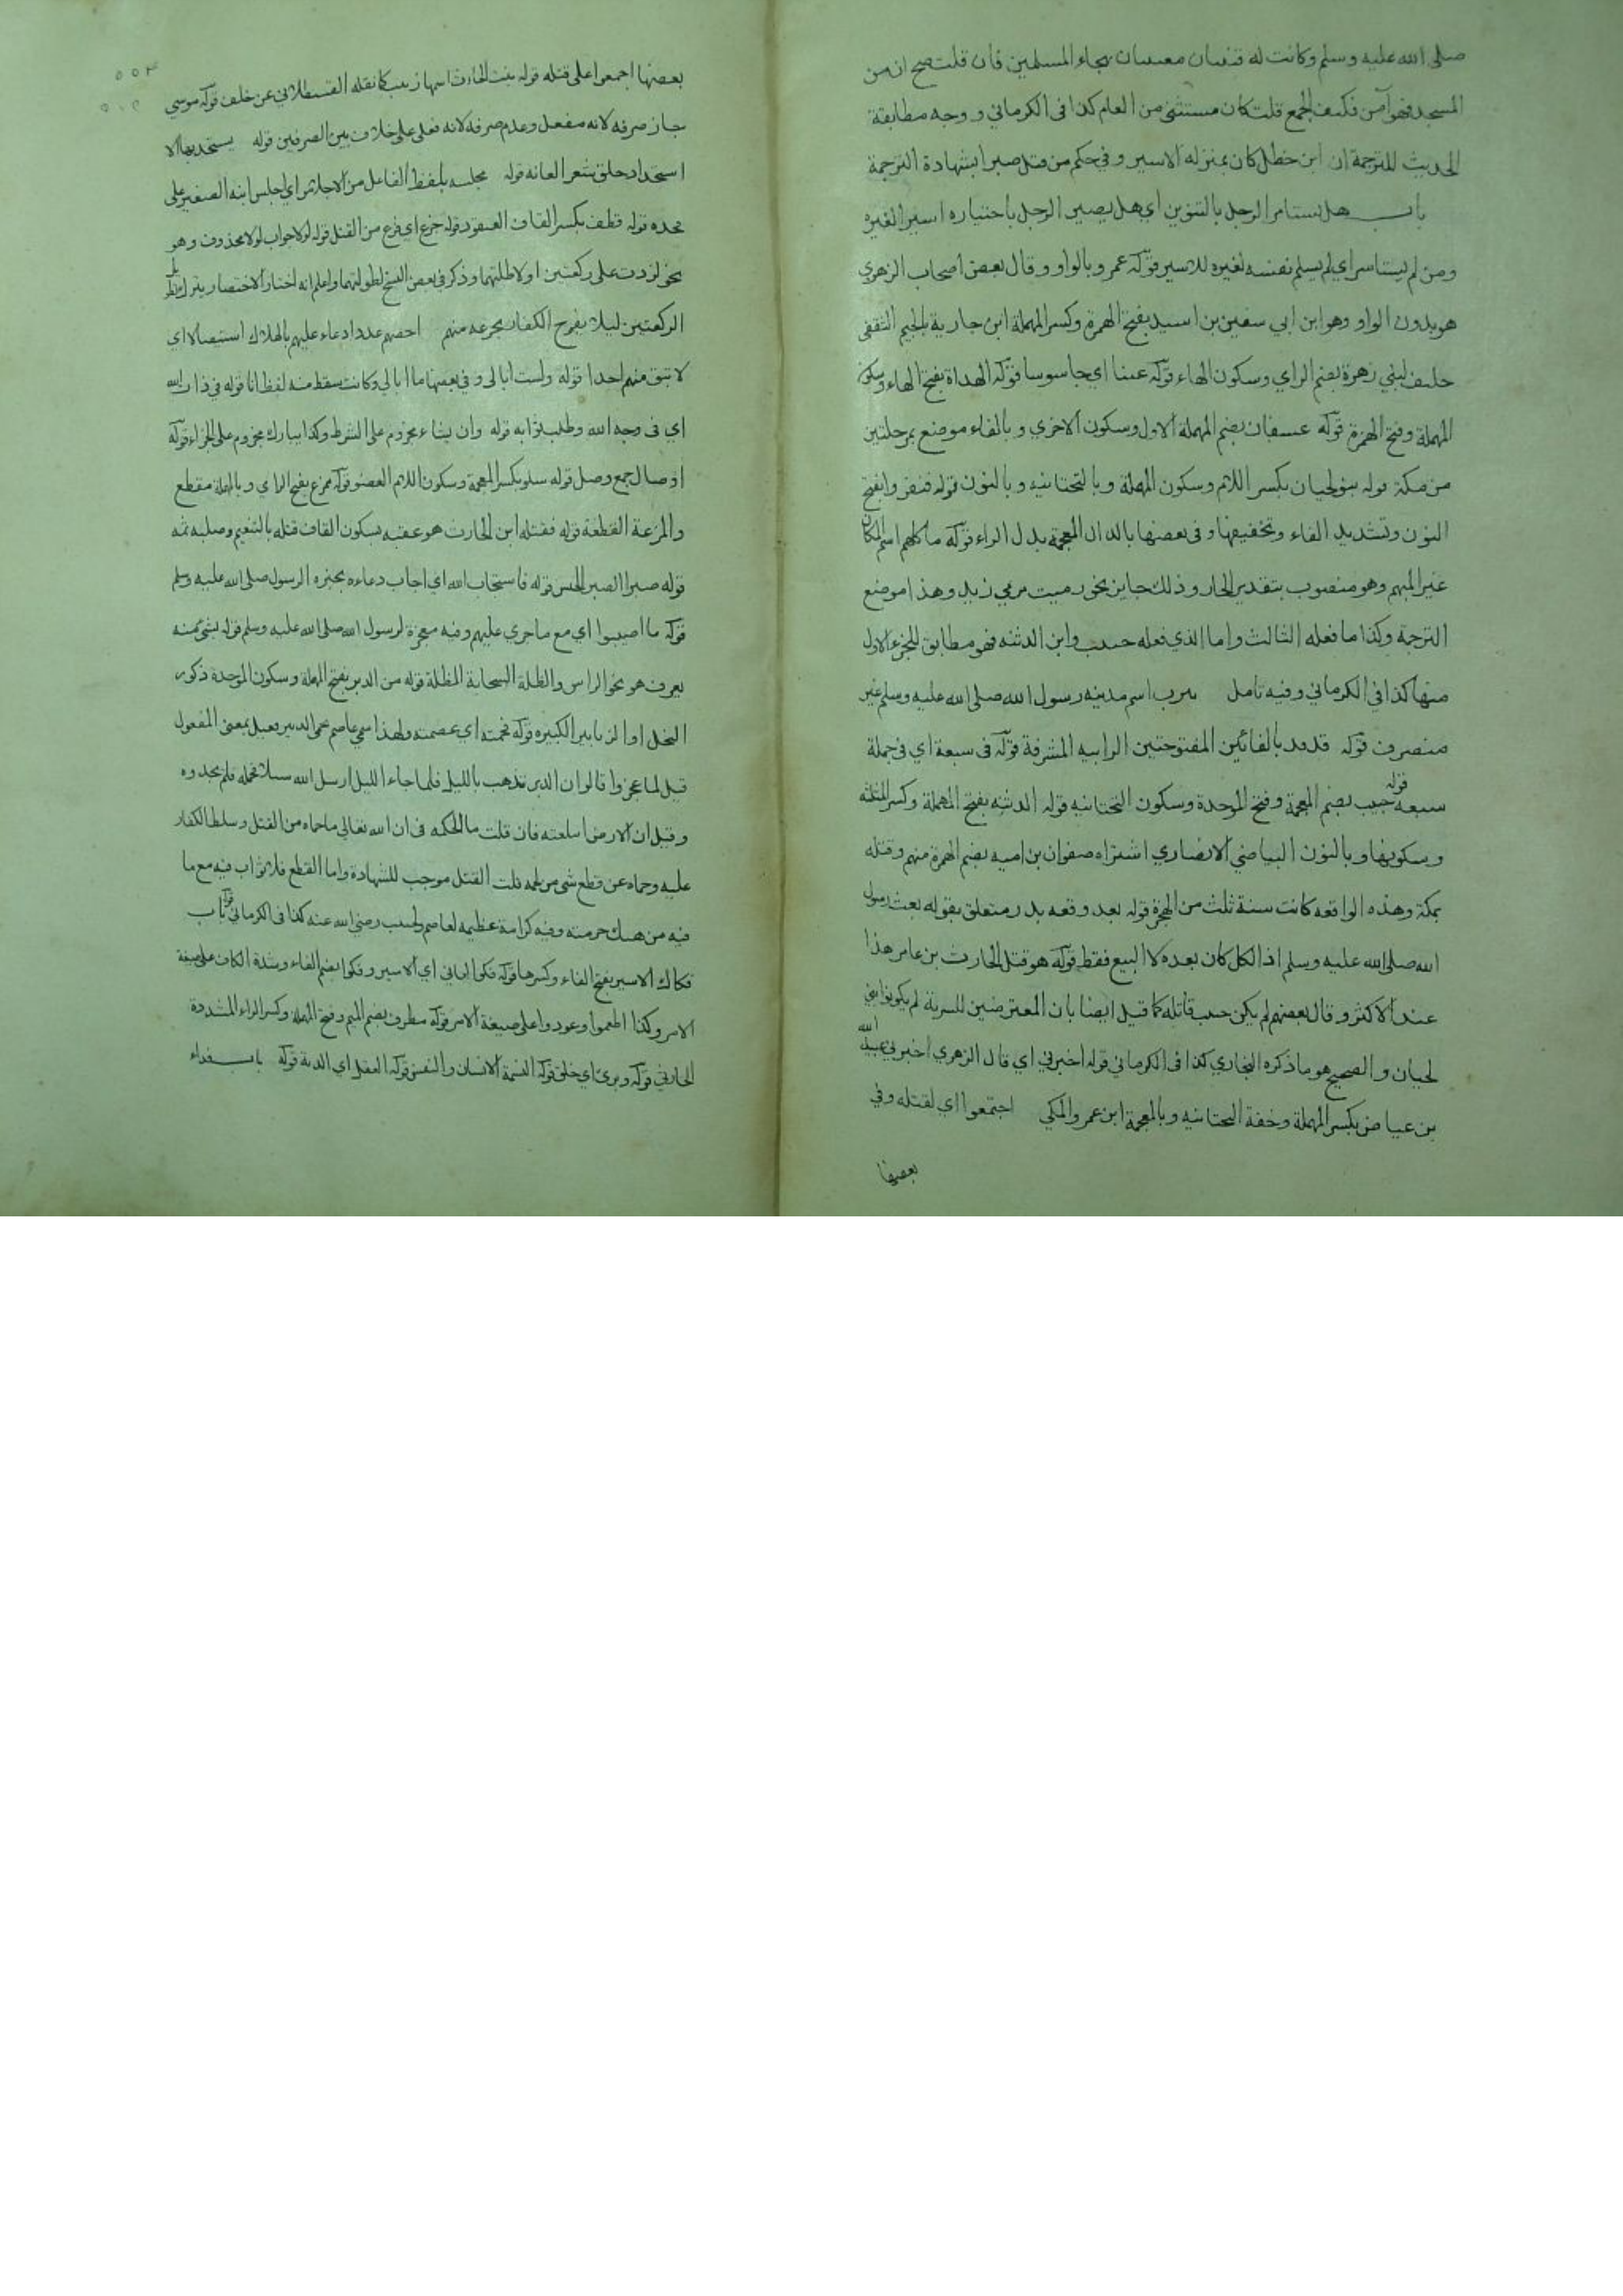 صلى الله عليه وسلم وكانت له قينتان تغنيان بهجاء المسلمين فان قلت صح ان من
المسجد فهو آمن فكيف الجمع قلت كان مستثنى من العام كذا في الكرماني ووجه مطابقة
الحديث للترجمة ان ابن خطل كان بمنزلة الاسير وفي حكم من قتل صبرا بشهادة الترجمة
باب هل يستاسر الرجل بالتنوين اي هل يصير الرجل باختياره اسيرا لغيره
ومن لم يستاسر اي لم يسلم نفسه لغيره للاسير قوله عمرو بالواو وقال بعض اصحاب الزهري
هو بدون الواو وهو ابن ابي سفين بن اسيد بفتح الهمزة وكسر المهملة ابن جارية بالجيم الثقفي
حليف لبني زهرة بضم الزاي وسكون الهاء قوله عينا اي جاسوسا قوله الهداة بفتح الهاء وسكون
المهملة وفتح الهمزة قوله عسفان بضم المهملة الاولى وسكون الاخرى وبالفاء موضع بمرحلتين
من مكة قوله بنو لحيان بكسر اللام وسكون المهملة وبالتحتانيه وبالنون قوله فنفروا بفتح
النون وتشديد الفاء وتخفيفها وفي بعضها بالدال المعجمة بدل الراء قوله ماكلهم اسم المكان
غير المبهم وهو منصوب بتقدير الجار وذلك جايز نحو رميت مرمي زيد وهذا موضع
الترجمة وكذا ما فعله الثالث واما الذي فعله خبيب وابن الدثنه فهو مطابق للجزء الاول
منها كذا في الكرماني وفيه تامل يثرب اسم مدينه رسول الله صلى الله عليه وسلم غير
منصرف قوله فدفد بالفائين المفتوحتين الرابيه المشرفة قوله في سبعة اي في جملة
سبعه قوله خبيب بضم المعجمة وفتح الموحدة وسكون التحتانيه قوله الدثنه بفتح المهملة وكسر المثلثه
وسكونها وبالنون البياضي الانصاري اشتراه صفوان بن اميه بضم الهمزة منهم وقتله
بمكة وهذه الواقعه كانت سنة ثلث من الهجرة قوله بعد وقعه بدر متعلق بقوله بعث رسول
الله صلى الله عليه وسلم اذ الكل كان بعده لا البيع فقط قوله هو قتل الحارث بن عامر هذا
عند الاكثر وقال بعضهم لم يكن خبيب قاتله كما قيل ايضا بان المعترضين للسرية لم يكونوا بني
لحيان والصحيح هو ما ذكره البخاري كذا في الكرماني قوله اخبرني اي قال الزهري اخبرني عبيد الله
بن عياض بكسر المهملة وخفة التحتانيه وبالمعجمة ابن عمرو المكي اجتمعوا اي لقتله وفي
بعضها
بعضها اجمعوا على قتله قوله بنت الحارث اسمها زينب كما نقله القسطلاني عن خلف قوله موسى
جاز صرفه لانه مفعل وعدم صرفه لانه فعلى على خلاف بين الصرفين قوله يستحد بها الا
استحداد حلق شعر العانه قوله مجلسه بلفظ الفاعل من الاجلاس اي اجلس ابنه الصغير على
فخذه قوله قطف بكسر القاف العنقود قوله جزع اي فزع من القتل قوله لولا جواب لولا محذوف وهو
نحو لزدت على ركعتين او لاطلتهما وذكر في بعض النسخ لطولتهما واعلم انه اختار الاختصار بترك تطويل
الركعتين ليلا يفرح الكفار بجزعه منهم احصهم عددا دعاء عليهم بالهلاك استيصالا اي
لا تبق منهم احدا قوله ولست ابالي وفي بعضها ما ابالي وكانت سقط منه لفظ انا قوله في ذات الله
اي في وجه الله وطلب ثوابه قوله وان يشاء مجزوم على الشرط وكذا يبارك مجزوم على الجزاء قوله
اوصال جمع وصل قوله شلو بكسر المعجمة وسكون اللام العضو قوله ممزع بفتح الزاي وبالمهملة مقطع
والمزعة القطعة قوله فقتله ابن الحارث هو عقبه بسكون القاف قتله بالتنعيم وصلبه ثمه
قوله صبرا الصبر الحبس قوله فاستجاب الله اي اجاب دعاءه بخبره الرسول صلى الله عليه وسلم
قوله ما اصيبوا اي مع ما جرى عليهم وفيه معجزة لرسول الله صلى الله عليه وسلم قوله بشي منه
يعرف هو نحو الراس والظلة السحابة المظلة قوله من الدبر بفتح المهملة وسكون الموحدة ذكور
النحل او الزنابير الكبيره قوله فحمته اي عصمته ولهذا سمي عاصم حمى الدبر فعيل بمعنى المفعول
قيل لما عجزوا قالوا ان الدبر تذهب بالليل فلما جاء الليل ارسل الله سيلا فحمله فلم يجدوه
وقيل ان الارض ابلعته فان قلت ما الحكمه في ان الله تعالى ما حماه من القتل وسلط الكفار
عليه وحماه عن قطع شي من لحمه قلت القتل موجب للشهادة واما القطع فلا ثواب فيه مع ما
فيه من هتك حرمته وفيه كرامة عظيمه لعاصم ولخبيب رضي الله عنه كذا في الكرماني قوله باب
فكاك الاسير بفتح الفاء وكسرها قوله فكوا العاني اي الاسير وفكوا بضم الفاء وشدة الكاف على صيغة
الامر وكذا اطعموا وعودوا على صيغة الامر قوله مطرف بضم الميم وفتح المهملة وكسر الراء المشددة
الحارثي قوله وبرئ اي خلق قوله النسمة الانسان والنفس قوله العقل اي الدية قوله باب فداء